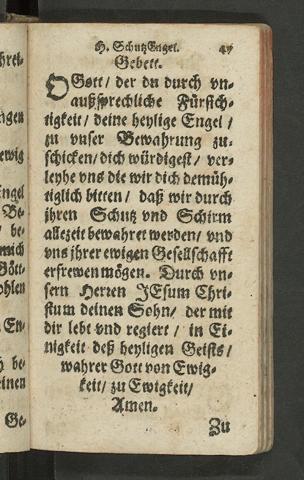 H. SchutzEngel. 47
Gebett.
O Gott / der du durch vn-
außsprechliche Fürsich-
tigkeit / deine heylige Engel /
zu vnser Bewahrung zu-
schicken / dich würdigest / ver-
leyhe vns die wir dich demüh-
tiglich bitten / daß wir durch
jhren Schutz vnd Schirm
allezeit bewahret werden / vnd
vns jhrer ewigen Gesellschafft
erfrewen mögen. Durch vn-
sern Herren JEsum Chri-
stum deinen Sohn / der mit
dir lebt vnd regiert / in Ei-
nigkeit deß heyligen Geists /
wahrer Gott von Ewig-
keit / zu Ewigkeit /
Amen.
Zu